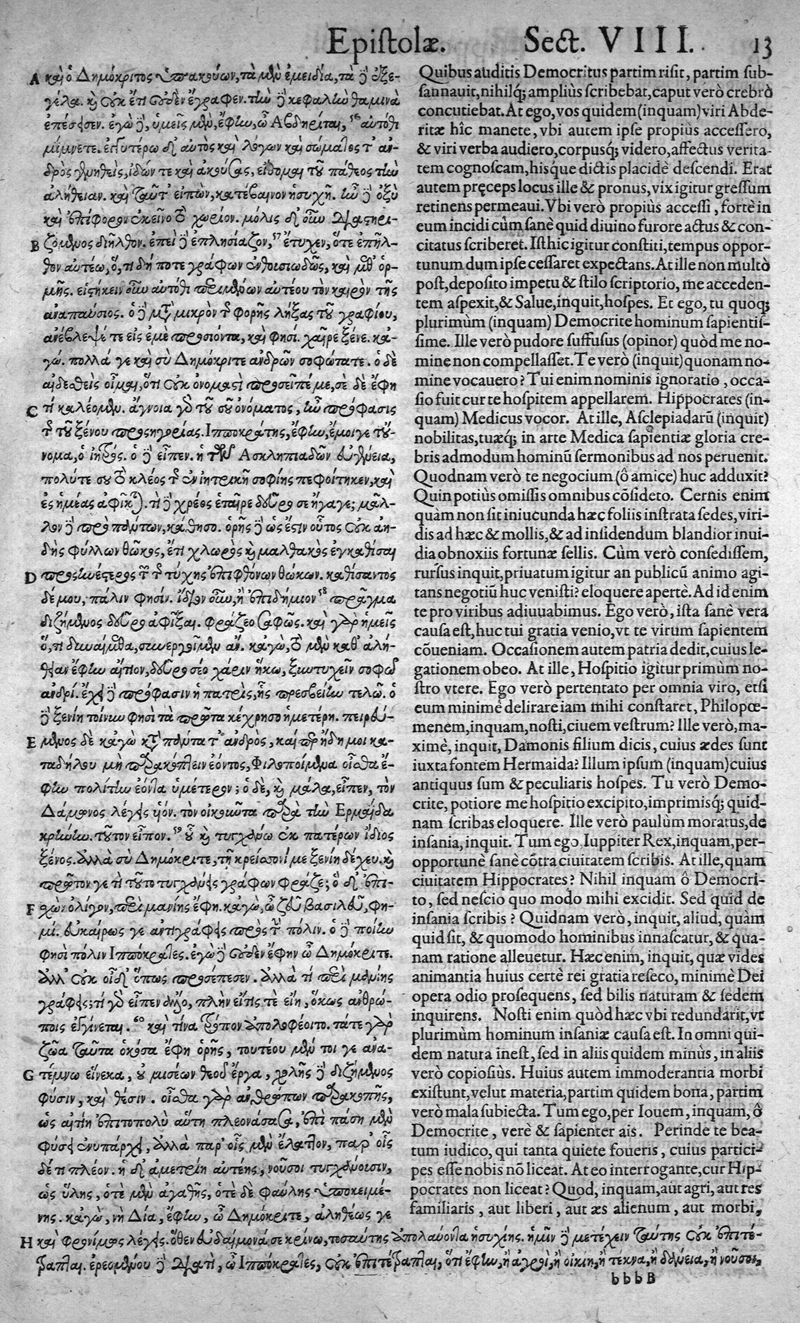 Epiſtolæ. Sect. VIII. 13
A καὶ ὁ Δημόκριτος ὑπακούων, τὰ μὲν ἐμειδία, τὰ δὲ ἐξε-
γέλα. καὶ οὐκ ἔτι οὐδὲν ἔγραφεν. τὴν δὲ κεφαλὴν θαμινὰ
ἐπέσειεν. ἐγὼ δὲ, ὑμεῖς μὲν, ἔφην, ὦ Αβδηρῖται, αὐτόθι
μίμνετε. ἐγγυτέρω δ' αὐτὸς καὶ λόγων καὶ σώματος τ' αν-
δρὸς γενηθεὶς, ἰδών τε καὶ ἀκούσας, εἴσομαι τοῦ πάθεος τὴν
ἀλήθειαν. καὶ ταῦτ' εἰπὼν, κατέβαινον ἡσυχῆ. ἦν δὲ ὀξὺ
καὶ ἐπίφορον ἐκεῖνο τὸ χωρίον. μόλις δ' οὖν διαστηρι-
B ζόμενος διῆλθον. ἐπεὶ δὲ ἐπλησίαζον, ἔτυχεν, ὅτε ἐπῆλ-
θον αὐτέῳ, ὅ, τι δή ποτε γράφων ἐνθουσιωδῶς, καὶ μεθ' ὁρ-
μῆς. εἱστήκειν οὖν αὐτόθι περιμένων αὐτέου τὸν καιρὸν τῆς
ἀναπαύσιος. ὁ δὲ μετὰ μικρὸν τῆς φορῆς λήξας τοῦ γραφίου,
ἀνέβλεψέ τε εἰς ἐμὲ προσιόντα, καὶ φησὶ. χαῖρε ξένε. κα-
γώ. πολλά γε καὶ σὺ Δημόκριτε ἀνδρῶν σοφώτατε. ὁ δὲ
αἰδεσθεὶς οἶμαι, ὅτι οὐκ ὀνομαστὶ προσεῖπέ με, σὲ δὲ ἔφη
C τί καλέομεν. ἄγνοια γὰρ τοῦ σοῦ ὀνόματος, ἦν πρόφασις
τῆς τοῦ ξένου προσηγορίας. Ιπποκράτης, ἔφην, ἔμοιγε τοὔ-
νομα, ὁ ἰητρός. ὁ δὲ εἶπεν. ἡ τῶν Ασκληπιαδῶν εὐγένεια,
πολύ τέ σου τὸ κλέος τῆς ἐν ἰητρικῇ σοφίης πεφοίτηκεν, καὶ
ἐς ἡμέας ἀφῖκται. τί δὲ χρέος ἑταῖρε δεῦρό σε ἤγαγε; μᾶλ-
λον δὲ πρὸ πάντων, κάθησο. ὁρῇς δὲ ὡς ἔστιν οὗτος οὐκ ἀη-
δὴς φύλλων θῶκος, ἔτι χλωρὸς καὶ μαλθακὸς ἐγκαθίσαι
D προσηνέστερος τῶν τῆς τύχης ἐπιφθόνων θώκων. καθίσαντος
δέ μου, πάλιν φησίν. ἴδιον οὖν, ἢ ἐπιδήμιον πρᾶγμα
διζήμενος δεῦρο ἀφῖξαι. φράζεο σαφῶς. καὶ γὰρ ἡμεῖς
ὅ, τι δυναίμεθα, συνεργοῖμεν ἄν. καγὼ, τὸ μὲν κατ' ἀλή-
θειαν ἔφην αἴτιον, δεῦρο σέο χάριν ἥκω, ξυντυχεῖν σοφῷ
ἀνδρί. ἔχει δὲ πρόφασιν ἡ πατρὶς, ἧς πρεσβείην τελῶ. ὁ
δὲ ξενίῃ τοίνυν φησὶ τὰ πρῶτα κέχρησο ἡμετέρῃ. πειρεύ-
E μενος δὲ καγὼ κατὰ πάντα τ' ἀνδρὸς, καίπερ ἤδη μοι κα-
ταδήλου μὴ παρακόπτειν ἐόντος, Φιλοποίμενα οἶσθα ἔ-
φην πολίτην ἐόντα ὑμέτερον; ὁ δὲ, καὶ μάλα, εἶπεν, τὸν
Δάμονος λέγεις υἱόν. τὸν οἰκεῦντα παρὰ τὴν Ερμαΐδα
κρήνην. τοῦτον εἶπον. οὗ καὶ τυγχάνω ἐκ πατέρων ἴδιος
ξένος. ἀλλὰ σὺ Δημόκριτε, τῇ κρείσσονί με ξενίῃ δέχευ, καὶ
πρῶτόν γε τί τοῦτο τυγχάνεις γράφων φράζε; ὁ δ' ἐπι-
F σχὼν ὀλίγον, περὶ μανίης ἔφη. καγὼ, ὦ Ζεῦ βασιλεῦ, φη-
μί. εὐκαίρως γε ἀντιγράφεις πρὸς τὴν πόλιν. ὁ δὲ ποίην
φησὶ πόλιν Ιππόκρατες. ἐγὼ δὲ οὐδὲν ἔφην ὦ Δημόκριτε.
ἀλλ' οὐκ οἶδ' ὅπως προσέπεσεν. ἀλλὰ τί περὶ μανίης
γράφεις; τί γὰρ εἶπεν ἄλλο, πλὴν ἥτις τε εἴη, ὅκως ἀνθρώ-
ποις ἐγγίνεται. καὶ τίνα τρόπον ἀπολωφέοιτο. τά τε γὰρ
ζῶα ταῦτα ὁκόσα ἔφη ὁρῇς, τουτέου μέν τοι γε ἀνα-
G τέμνω εἵνεκα, οὐ μισέων θεοῦ ἔργα, χολῆς δὲ διζήμενος
φύσιν, καὶ θέσιν. οἶσθα γὰρ ἀνθρώπων παρακοπῆς,
ὡς αἰτίη ἐπιτοπολὺ αὕτη πλεονάσασα, ἐπὶ πᾶσι μὲν
φύσει ἐνυπάρχει, ἀλλὰ παρ' οἷς μὲν ἔλαττον, παρ' οἷς
δέ τι πλέον. ἡ δ' ἀμετρίη αὐτέης, νοῦσοι τυγχάνουσιν,
ὡς ὕλης, ὁτὲ μὲν ἀγαθῆς, ὁτὲ δὲ φαύλης ὑποκειμέ-
νης. καγὼ, νὴ Δία, ἔφην, ὦ Δημόκριτε, ἀληθέως γε
Quibus auditis Democritus partim riſit, partim ſub-
ſannauit, nihilq; amplius ſcribebat, caput verò crebrò
concutiebat. At ego, vos quidem (inquam) viri Abde-
ritæ hîc manete, vbi autem ipſe propius acceſſero,
& viri verba audiero, corpusq; videro, affectus verita-
tem cognoſcam, hisque dictis placidè deſcendi. Erat
autem pręceps locus ille & pronus, vix igitur greſſum
retinens permeaui. Vbi verò propiùs acceſſi, fortè in
eum incidi cùm ſanè quid diuino furore actus & con-
citatus ſcriberet. Iſthîc igitur conſtiti, tempus oppor-
tunum dum ipſe ceſſaret expectans. At ille non multò
pòſt, depoſito impetu & ſtilo ſcriptorio, me acceden-
tem aſpexit, & Salue, inquit, hoſpes. Et ego, tu quoq;
plurimùm (inquam) Democrite hominum ſapientiſ-
ſime. Ille verò pudore ſuffuſus (opinor) quòd me no-
mine non compellaſſet. Te verò (inquit) quonam no-
mine vocauero? Tui enim nominis ignoratio, occa-
ſio fuit cur te hoſpitem appellarem. Hippocrates (in-
quam) Medicus vocor. At ille, Aſclepiadarū (inquit)
nobilitas, tuæq; in arte Medica ſapientiæ gloria cre-
bris admodum hominū ſermonibus ad nos peruenit.
Quodnam verò te negocium (ô amice) huc adduxit?
Quin potiùs omiſſis omnibus cōſideto. Cernis enim
quàm non ſit iniucunda hæc foliis inſtrata ſedes, viri-
dis ad hæc & mollis, & ad inſidendum blandior inui-
dia obnoxiis fortunæ ſellis. Cùm verò conſediſſem,
rurſus inquit, priuatum igitur an publicū animo agi-
tans negotiū huc veniſti? eloquere apertè. Ad id enim
te pro viribus adiuuabimus. Ego verò, iſta ſanè vera
cauſa eſt, huc tui gratia venio, vt te virum ſapientem
cōueniam. Occaſionem autem patria dedit, cuius le-
gationem obeo. At ille, Hoſpitio igitur primùm no-
ſtro vtere. Ego verò pertentato per omnia viro, etſi
eum minimè delirare iam mihi conſtaret, Philopœ-
menem, inquam, noſti, ciuem veſtrum? Ille verò, ma-
ximè, inquit, Damonis filium dicis, cuius ædes ſunt
iuxta fontem Hermaida? Illum ipſum (inquam) cuius
antiquus ſum & peculiaris hoſpes. Tu verò Demo-
crite, potiore me hoſpitio excipito, imprimisq; quid-
nam ſcribas eloquere. Ille verò paulùm moratus, de
inſania, inquit. Tum ego Iuppiter Rex, inquam, per-
opportunè ſanè cōtra ciuitatem ſcribis. At ille, quam
ciuitatem Hippocrates? Nihil inquam ô Democri-
to, ſed neſcio quo modo mihi excidit. Sed quid de
inſania ſcribis? Quidnam verò, inquit, aliud, quàm
quid ſit, & quomodo hominibus innaſcatur, & qua-
nam ratione alleuetur. Hæc enim, inquit, quæ vides
animantia huius certè rei gratia reſeco, minimè Dei
opera odio proſequens, ſed bilis naturam & ſedem
inquirens. Noſti enim quòd hæc vbi redundarit, vt
plurimùm hominum inſaniæ cauſa eſt. In omni qui-
dem natura ineſt, ſed in aliis quidem minùs, in aliis
verò copioſiùs. Huius autem immoderantia morbi
exiſtunt, velut materia, partim quidem bona, partim
verò mala ſubiecta. Tum ego, per Iouem, inquam, ô
Democrite, verè & ſapienter ais. Perinde te bea-
tum iudico, qui tanta quiete foueris, cuius partici-
pes eſſe nobis nō liceat. At eo interrogante, cur Hip-
pocrates non liceat? Quòd, inquam, aut agri, aut res
familiaris, aut liberi, aut æs alienum, aut morbi,
H καὶ φρονίμως λέγεις. ὅθεν εὐδαίμονά σε κρίνω, τοσαύτης ἀπολαύοντα ἡσυχίης. ἡμῖν δὲ μετέχειν ταύτης οὐκ ἐπιτέ-
τραπται. ἐρεομένου δὲ διατί, ὦ Ιππόκρατες, οὐκ ἐπιτέτραπται, ὅτι ἔφην, ἢ ἀγροὶ, ἢ οἰκίη, ἢ τέκνα, ἢ δάνεια, ἢ νοῦσοι,
bbbB